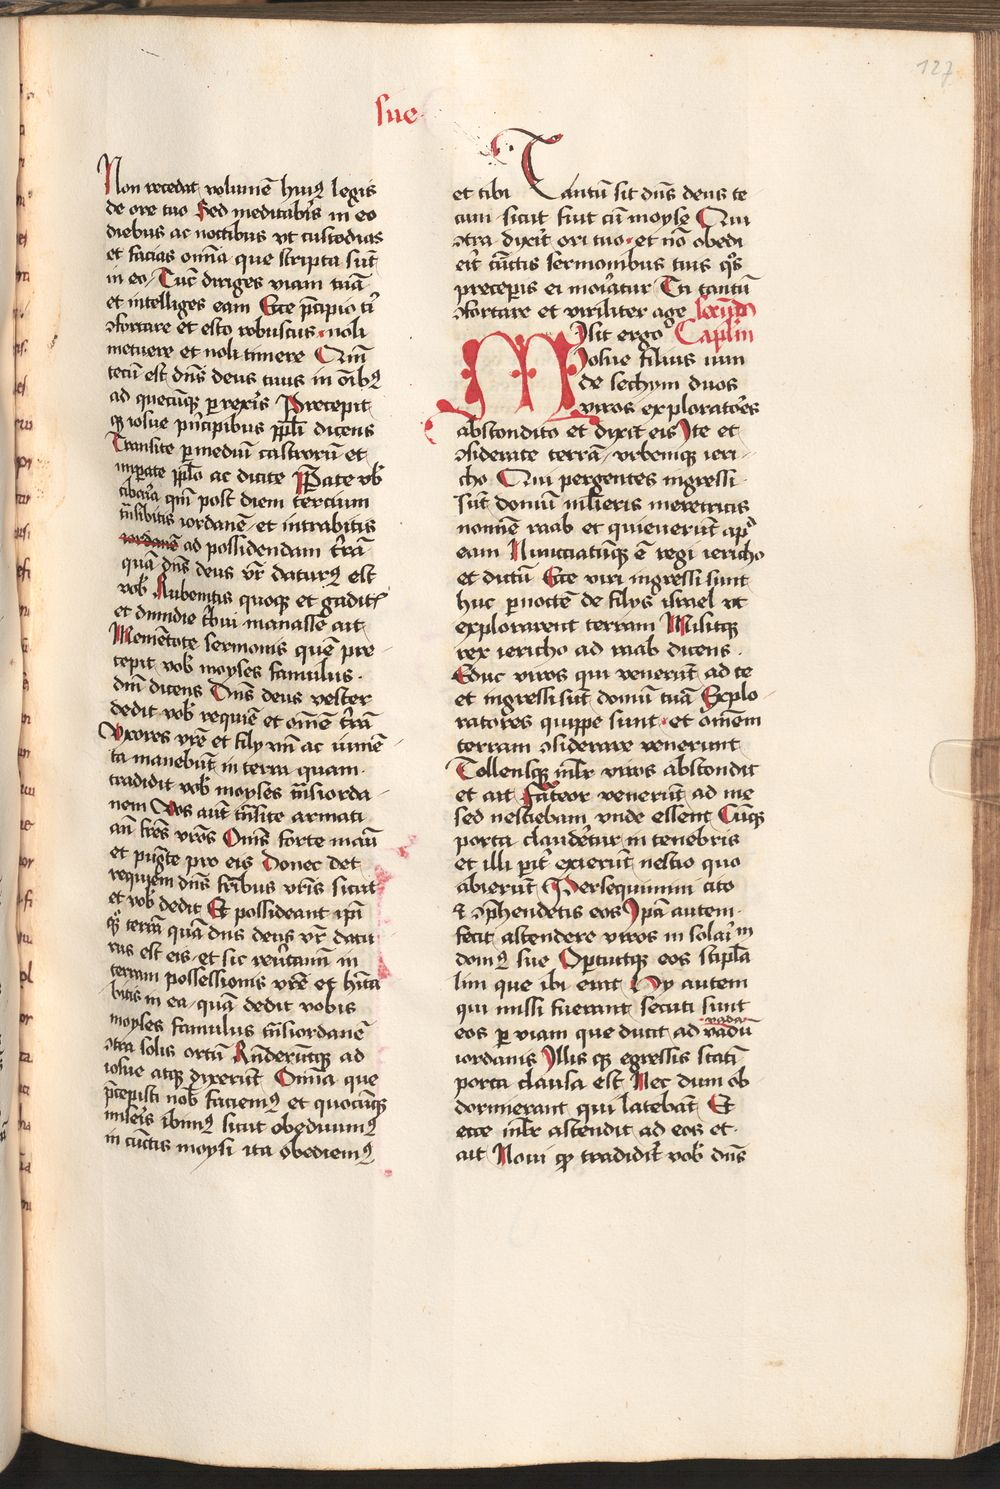 127
sue
Non recedat volumē huiꝰ legis
de ore tuo Sed meditabīs in eo
diebus ac noctibus vt custodias
et facias om̄ia que scripta sūt
in eo Tūc diriges viam tuā
et intelliges eam Ecce p̄cipio tͥ
ꝯfortare et esto robustus noli
metuere et noli timere Qm̄
tecū est dn̄s deus tuus in oīibꝫ
ad quecūqꝫ ꝑrexeͥs Precepit
qꝫ iosue pͥncipibus ppl̄i dicens
Transite ꝑ mediū castrorū et
imꝑate ppl̄o ac dicite Pꝑate vob̄
cibaria qm̄ post diem tercium
tn̄sibitis iordanē et intrabitis
iordanē ad possidendam tr̄rā
quā dn̄s deus vr̄ daturꝰ est
vob̄ Rubenitis quoqꝫ et gaditꝭ
et dimidie tͥbui manasse ait
Memētote sermonis quē pre
cepit vob̄ moyses famulus
dn̄i dicens Dn̄s deus vester
dedit vob̄ requiē et om̄ē tr̄rā
Vxores vr̄e et filij vr̄i ac iumē
ta manebūt in terra quam
tradidit vob̄ moyses tn̄siorda
nem Vos aūt tn̄site armati
an̄ fr̄es vr̄os Om̄s forte manū
et pugͣte pro eis Donec det
requiem dn̄s fr̄ibus vr̄is sicut
et vob̄ dedit Et possideant ipī
qͦꝫ terrā quā dn̄s deus vr̄ datu
rus est eis et sic reūtamī in
terram possessionis vr̄e et hīta
bitis in ea quā dedit vobis
moyses famulus tn̄siordanē
ꝯtra solis ortū Rn̄derūtqꝫ ad
iosue atqꝫ dixerūt Omīa que
p̄cepisti nob̄ faciemꝰ et quocūqꝫ
miseͥs ibimꝰ sicut obediuimꝰ
in cūctis moysi ita obediemꝰ
et tibi Tantū sit dn̄s deus te
cum sicut fuit cū moyse Qui
ꝯtra dixeͥt ori tuo et nō obedi
eͥt cūctis sermonibus tuis qͦs
preceperis ei moriatur Tu tantū
ꝯfortare et viriliter age Secūdū
Misit ergo Caplm̄
Josue filius nun
de sechym duos
viros exploratōes
abscondito et dixit eis Ite et
ꝯsiderate terrā vrbemqꝫ ieri
cho Qui pergentes ingressi
sūt domū mlieris meretricis
nomīe raab et quieuerūt apͩ
eam Nunctiatūqꝫ ē regi iericho
et dictū Ecce viri ingressi sunt
huc ꝑ noctē de filijs israel vt
explorarent terram Misitqꝫ
rex iericho ad raab dicens
Educ viros qui venerūt ad te
et ingressi sūt domū tuā Explo
ratores quippe sunt et om̄em
terram ꝯsiderare venerunt
Tollensqꝫ mlr̄ viros abscondit
et ait Fateor venerūt ad me
sed nesciebam vnde essent Cūqꝫ
porta claudetur in tenebris
et illi pͥt exierūt nescio quo
abierūt Persequimini cito
et ꝯp̄hendetis eos Ipā autem
fecit ascendere viros in solaͥm
domꝰ sue Oꝑuitqꝫ eos stipl̄a
lini que ibi erat Hij autem
qui missi fuerant secuti sunt
eos ꝑ viam que ducit ad vadū
vada
iordanis Illis qꝫ egressis statī
porta clausa est Nec dum ob
dormierant qui latebāt Et
ecce mlr̄ ascendit ad eos et
ait Noui ꝙ tradidit vob̄ dn̄s